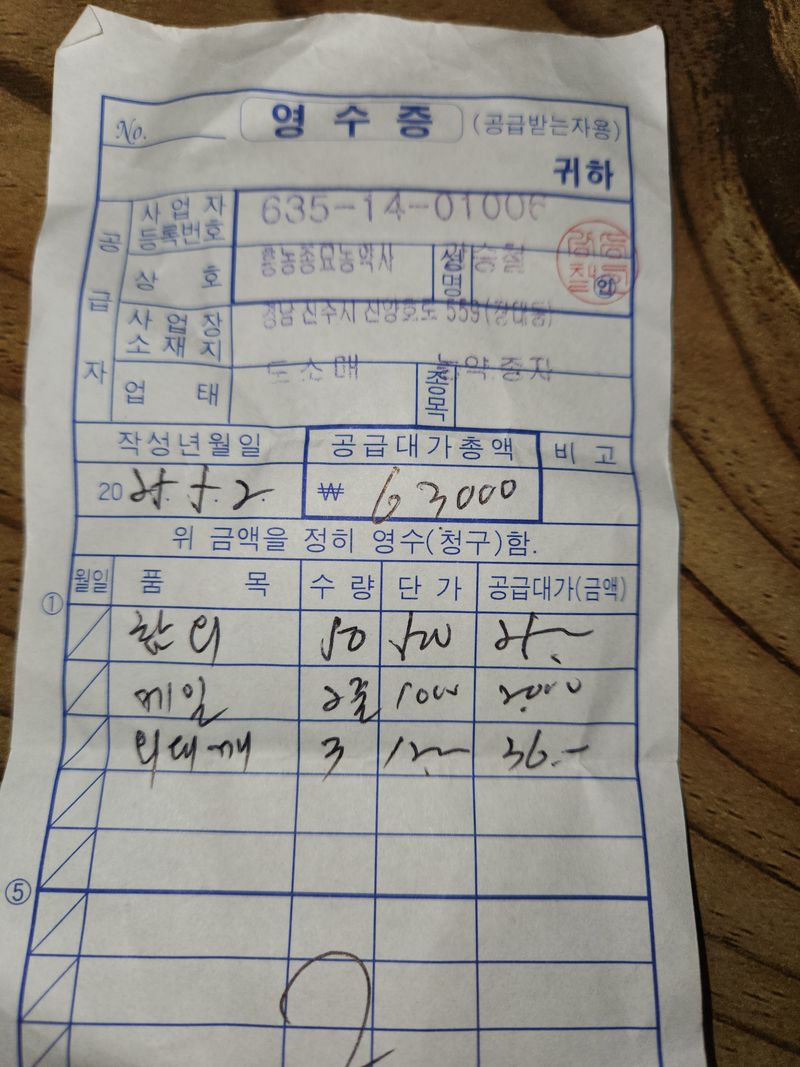 No. 영수증 (공급받는자용)
귀하
공급자
사업자등록번호 635-14-01006
상호 흥농종묘농약사 성명
사업장소재지 경남 진주시 진양호로 559(장대동)
업태 도소매 종목 농약종자
작성년월일 공급대가총액 비고
2025. 5. 2. ₩ 63000
위 금액을 정히 영수(청구)함.
월일 품목 수량 단가 공급대가(금액)
① 참외 50 500 25.-
메일 2줄 1000 2000
외대깨 3 12.- 36.-
⑤